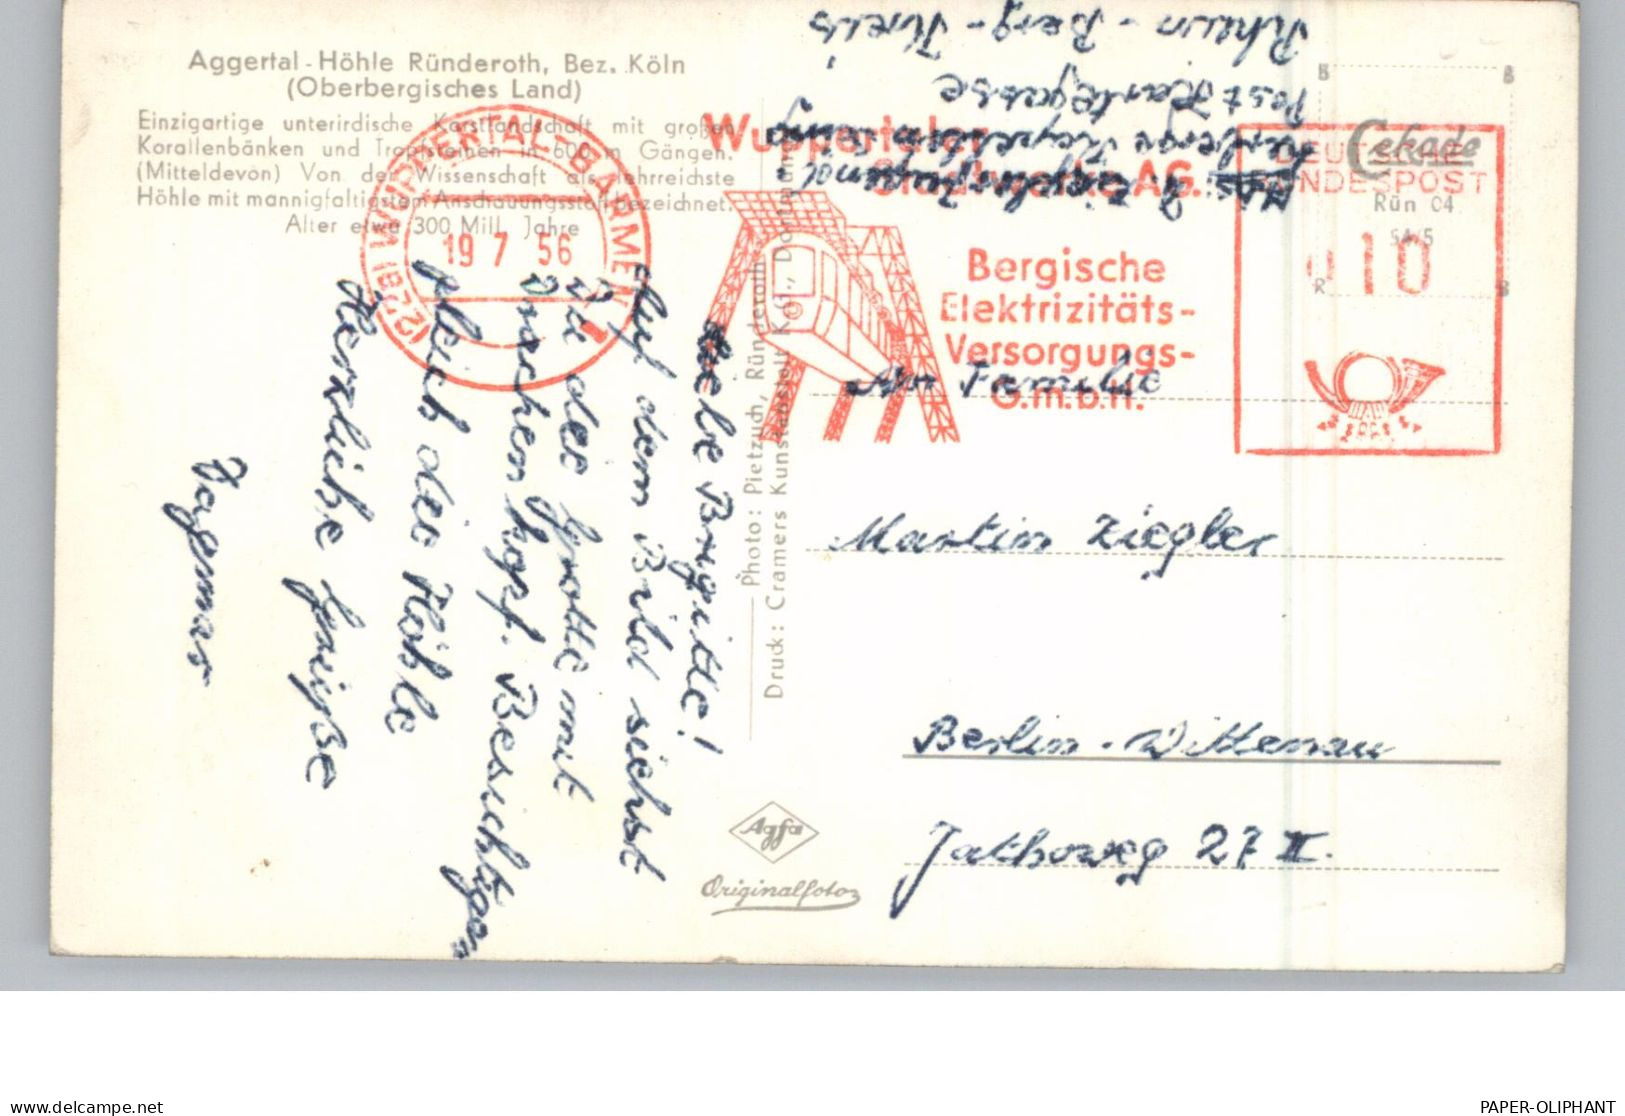 Aggertal-Höhle Ründeroth, Bez. Köln
(Oberbergisches Land)
Einzigartige unterirdische Karstlandschaft mit großen
Korallenbänken und Tropfsteinen in 600 m Gängen.
(Mitteldevon) Von der Wissenschaft als lehrreichste
Höhle mit mannigfaltigstem Anschauungsstoff bezeichnet.
Alter etwa 300 Mill. Jahre
(22a) WUPPERTAL-BARMEN 1
19 7 56
Liebe Brigitte!
Auf dem Bild siehst
Du die Grotte mit
Drachenkopf. Besichtigen
gleich die Höhle
Herzliche Grüße
Dagmar
Photo: Pietzuch, Ründeroth
Druck: Cramers Kunstanstalt KG., Dortmund
Agfa
Originalfoto
Wuppertaler
AG.
Bergische
Elektrizitäts-
Versorgungs-
G.m.b.H.
Post
Rhein-Berg-Kreis
Cekade
Rün 04
DEUTSCHE
BUNDESPOST
010
An Familie
Martin Ziegler
Berlin-Wittenau
Jathoweg 27 II.
delcampe.net
PAPER-OLIPHANT